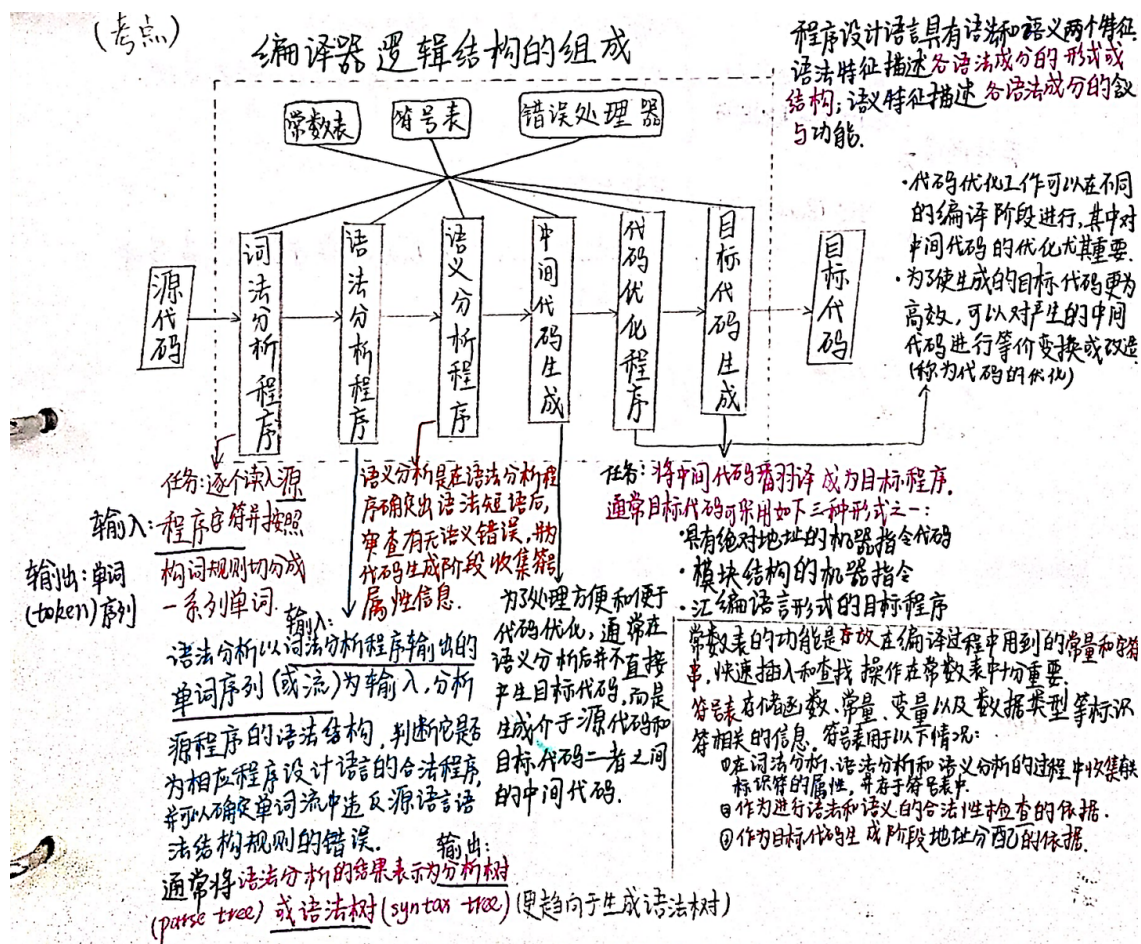 (考点)
编译器逻辑结构的组成
程序设计语言具有语法和语义两个特征
语法特征描述各语法成分的形式或
结构;语义特征描述各语法成分的含义
与功能.
常数表
符号表
错误处理器
源代码
词法分析程序
语法分析程序
语义分析程序
中间代码生成
代码优化程序
目标代码生成
目标代码
·代码优化工作可以在不同
的编译阶段进行,其中对
中间代码的优化尤其重要.
·为了使生成的目标代码更为
高效,可以对产生的中间
代码进行等价变换或改造
(称为代码的优化)
任务:逐个读入源
输入:程序字符并按照
构词规则切分成
一系列单词.
输出:单词
(token)序列
语义分析是在语法分析程
序确定出语法短语后,
审查有无语义错误,并为
代码生成阶段收集符号
属性信息.
任务:将中间代码翻译成为目标程序.
通常目标代码可采用如下三种形式之一:
·具有绝对地址的机器指令代码
·模块结构的机器指令
·汇编语言形式的目标程序
输入:
语法分析以词法分析程序输出的
单词序列(或流)为输入,分析
源程序的语法结构,判断它是否
为相应程序设计语言的合法程序,
并可以确定单词流中违反源语言语
法结构规则的错误.
输出:
通常将语法分析的结果表示为分析树
(parse tree)或语法树(syntax tree)(更趋向于生成语法树)
为了处理方便和便于
代码优化,通常在
语义分析后并不直接
产生目标代码,而是
生成介于源代码和
目标代码二者之间
的中间代码.
常数表的功能是存放在编译过程中用到的常量和字符
串,快速插入和查找操作在常数表中十分重要.
符号表存储函数、常量、变量以及数据类型等标识
符相关的信息.符号表用于以下情况:
①在词法分析、语法分析和语义分析的过程中收集有关
标识符的属性,并存于符号表中.
②作为进行语法和语义的合法性检查的依据.
③作为目标代码生成阶段地址分配的依据.